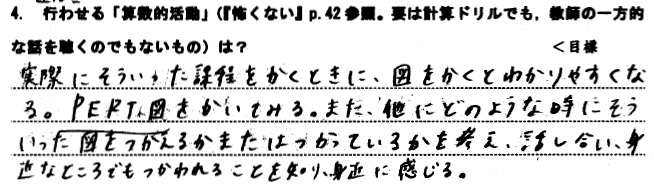 4. 行わせる「算数的活動」(『怖くない』p.42参照。要は計算ドリルでも,教師の一方的
な話を聴くのでもないもの)は? <目様
実際にそういった課程をかくときに、図をかくとわかりやすくな
る。PERT図をかいてみる。また、他にどのような時にそう
いった図をつかえるかまたはつかっているかを考え、話し合い、身
近なところでもつかわれることを知り、身近に感じる。